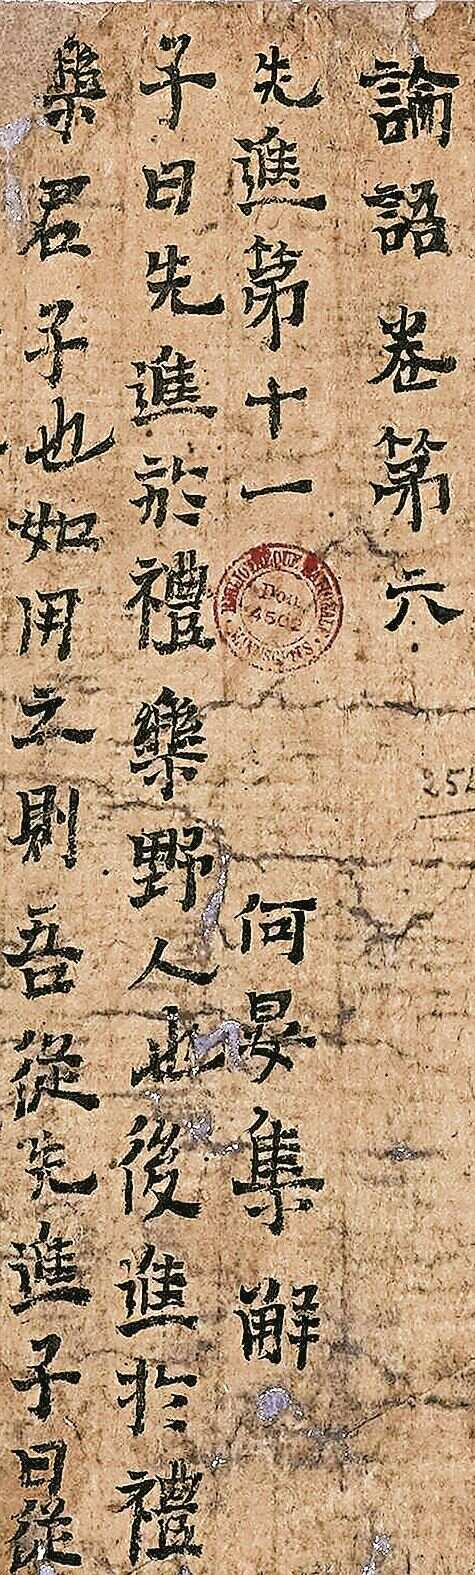 論語卷第六
先進第十一 何晏集解
子曰先進於禮樂野人也後進於禮
樂君子也如用之則吾從先進子曰從
Don.
4502
252